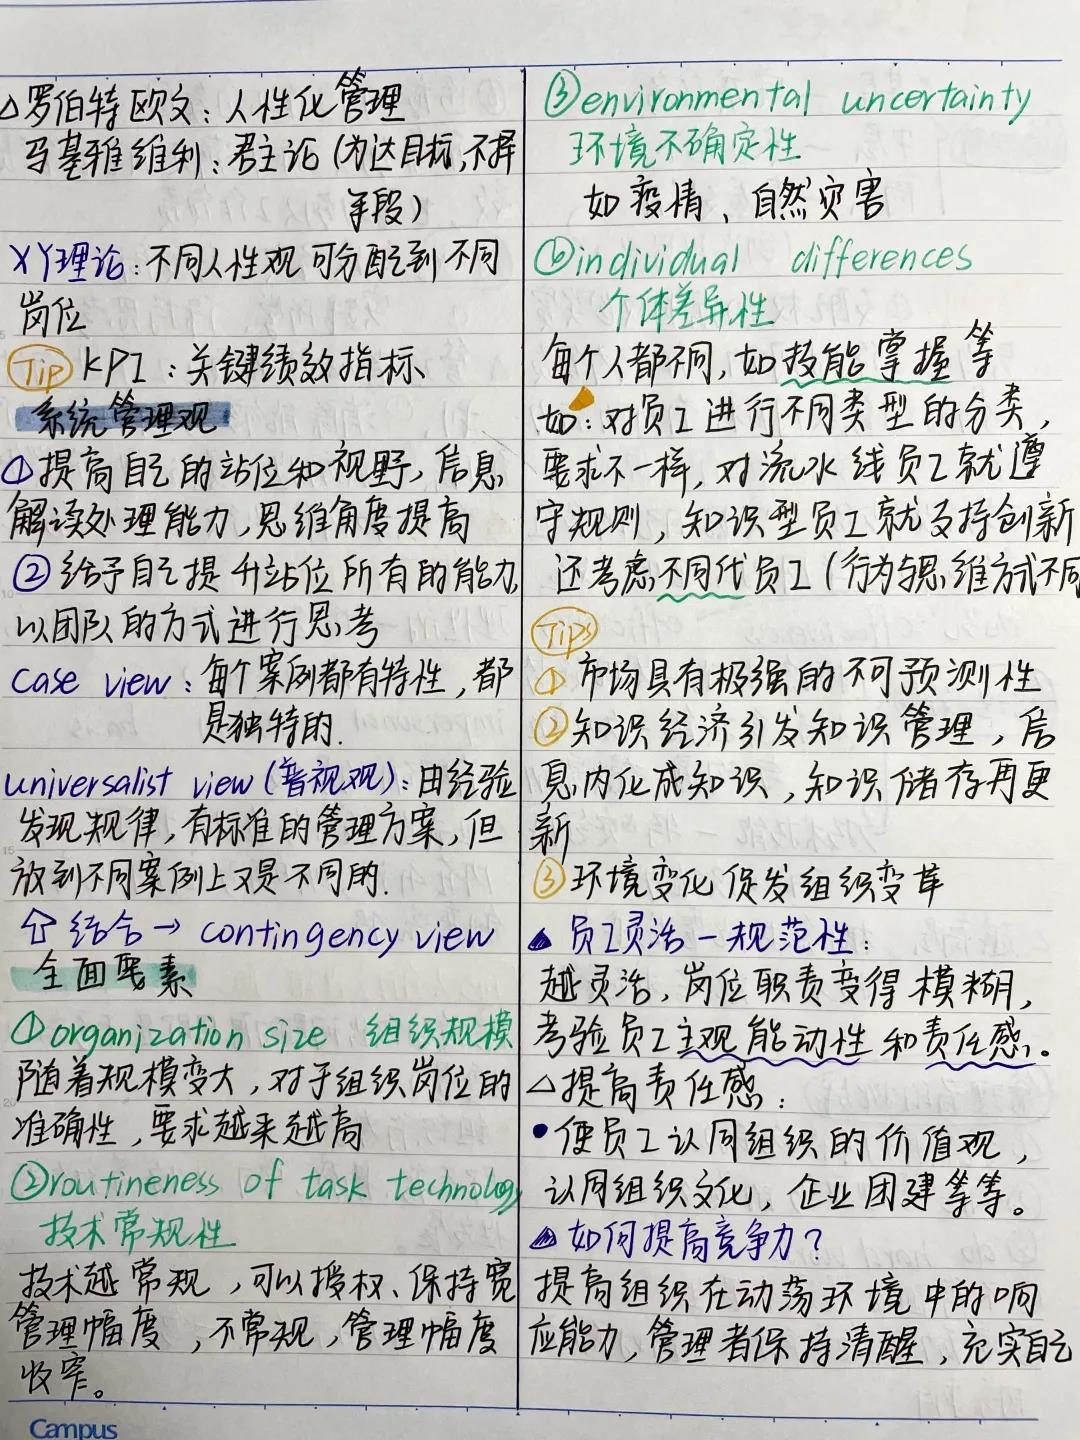 △罗伯特欧文：人性化管理
马基雅维利：君主论（为达目标，不择
手段）
XY理论：不同人性观可分配到不同
岗位
Tip KPI：关键绩效指标、
系统管理观
①提高自己的站位和视野，信息
解读处理能力，思维角度提高
②给予自己提升站位所有的能力，
以团队的方式进行思考
case view：每个案例都有特性，都
是独特的.
universalist view（普视观）：由经验
发现规律，有标准的管理方案，但
放到不同案例上又是不同的.
⇧结合→contingency view
全面要素
①organization size 组织规模
随着规模变大，对于组织岗位的
准确性，要求越来越高
②routineness of task technology
技术常规性
技术越常规，可以授权、保持宽
管理幅度，不常规，管理幅度
收窄。
③environmental uncertainty
环境不确定性
如疫情、自然灾害
individual differences
个体差异性
每个人都不同，如技能掌握等
如：对员工进行不同类型的分类，
要求不一样，对流水线员工就遵
守规则，知识型员工就支持创新
还考虑不同代员工（行为与思维方式不同
Tips
①市场具有极强的不可预测性
②知识经济引发知识管理，信
息内化成知识，知识储存再更
新
③环境变化促发组织变革
▲员工灵活—规范性：
越灵活，岗位职责变得模糊，
考验员工主观能动性和责任感。
△提高责任感：
•使员工认同组织的价值观，
认同组织文化，企业团建等等。
▲如何提高竞争力？
提高组织在动荡环境中的响
应能力，管理者保持清醒，充实自己
Campus